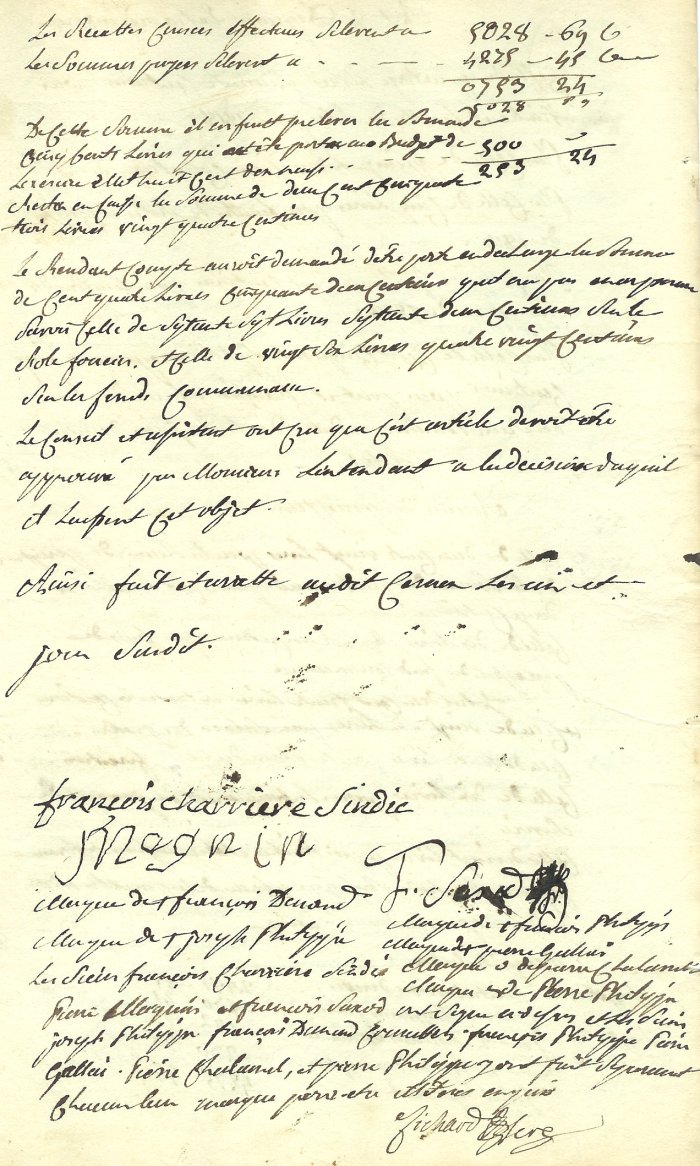 Les Recettes censées effectives s'élevent a 5028 - 69 C
Les Sommes payées s'élevent a - - - - 4275 - 45 C
0753 24
5028 69
De cette Somme il en faut prelever la Somme de
Cinq Cents Livres qui ont été portées au Budget de 500 "
L'exercice mil huit cent dix neuf. - - - 253 24
Reste en Caisse la Somme de deux Cent Cinquante
trois Livres vingt quatre Centimes
Le Rendant Compte auroit demandé d'etre porté en decharge la Somme
de Cent quatre Livres Cinquante deux Centimes qu'il n'a pas
Savoir Celle de Septante Sept Livres Septante deux Centimes Sur le
Role foncier. et Celle de vingt Six Livres quatre vingt Centimes
Sur les fonds Communaux.
Le Conseil et assistant ont Cru que C'est article devroit etre
approuvé par Monsieur L'intendant a la decision duquel
Il Laissent Cet objet.
Ainsi fait et arretté audit Cernex Les an et
jour Susdit.
françois charriere Sindic
Magnin
F. Savod
Marque de + françois Dunand
Marque de + françois Philippe
Marque de + joseph Philippe
Marque de + pierre Gallai
Marque + de pierre Chalamel
Les Sieurs françois Charriere Sindic
Marque + de Pierre Philippe
Pierre Magnin et françois Savod ont Signé et les Sieurs
joseph Philippe françois Dunand françois Philippe Pierre
Gallai. Pierre Chalamel, et pierre Philippe y ont fait Separement
Chacun leur marque
Richard